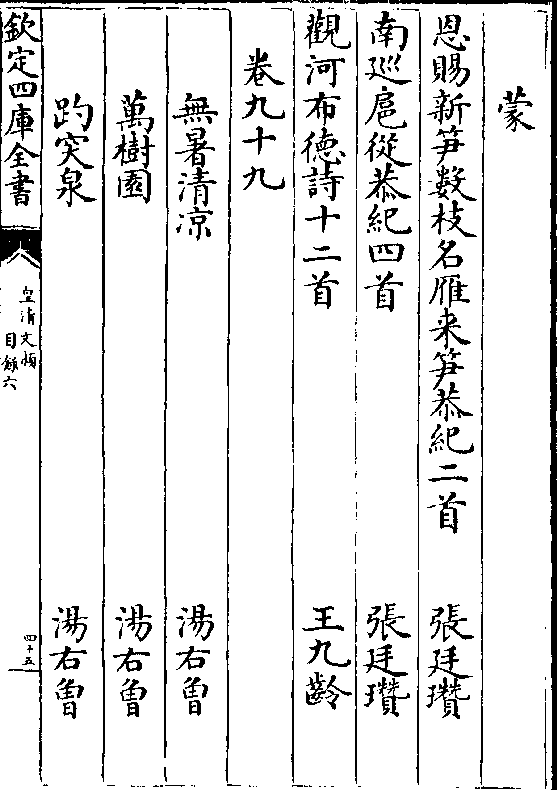 蒙
恩賜新笋數枝名雁来笋恭紀二首 張廷瓚
南廵扈從恭紀四首 張廷瓚
觀河布德詩十二首 王九齡
卷九十九
無暑清凉 湯右曾
萬樹園 湯右曾
趵突泉 湯右曾
欽定四庫全書
皇清文頴
目錄六
四十五